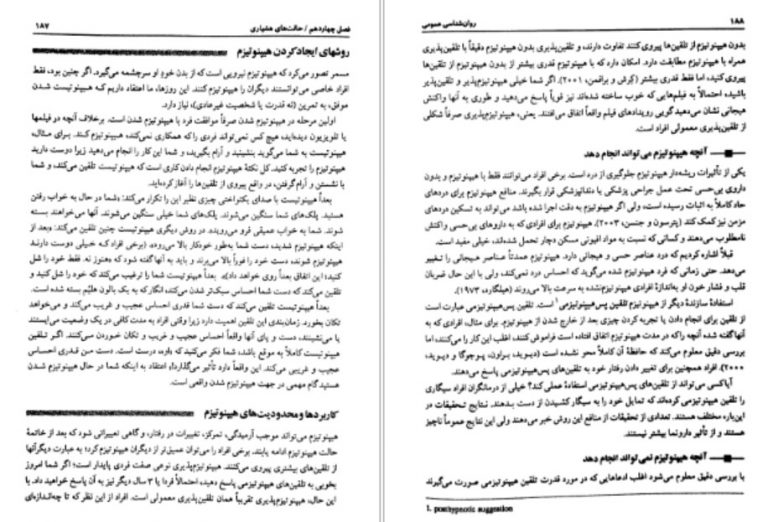 فصل چهاردهم / حالت‌های هشیاری ۱۸۷
روشهای ایجاد کردن هیپنوتیزم
مسمر تصور می‌کرد که هیپنوتیزم نیرویی است که از بدن خود او سرچشمه می‌گیرد. اگر چنین بود، فقط
افراد خاصی می‌توانستند دیگران را هیپنوتیزم کنند. این روزها، ما اعتقاد داریم که هیپنوتیست شدن
موفق، به تمرین (نه قدرت یا شخصیت غیرعادی)، نیاز دارد.
اولین مرحله در هیپنوتیزم شدن صرفاً موافقت فرد با هیپنوتیزم شدن است. برخلاف آنچه در فیلمها
یا تلویزیون دیده‌اید، هیچ کس نمی‌تواند فردی را که همکاری نمی‌کند، هیپنوتیزم کند. برای مثال،
هیپنوتیست به شما می‌گوید بنشینید و آرام بگیرید، و شما این کار را انجام می‌دهید زیرا دوست دارید
هیپنوتیزم را تجربه کنید. کل نکتهٔ هیپنوتیزم انجام دادن کاری است که هیپنوتیست تلقین می‌کند، و شما
با نشستن و آرام گرفتن، در واقع پیروی از تلقین‌ها را آغاز کرده‌اید.
بعداً هیپنوتیست با صدای یکنواختی چیزی نظیر این را تکرار می‌کند: «شما در حال به خواب رفتن
هستید. پلک‌های شما سنگین می‌شوند. پلک‌های شما خیلی سنگین می‌شوند. آنها می‌خواهند بسته
شوند. شما به خواب عمیقی فرو می‌روید». در روش دیگری هیپنوتیست چنین تلقین می‌کند: «بعد از
اینکه هیپنوتیزم شدید، دست شما به‌طور خودکار بالا می‌رود». برخی افراد که خیلی دوست دارند
هیپنوتیزم شوند، دست خود را فوراً بالا می‌برند و باید به آنها گفته شود که «هنوز نه. فقط خود را شل
کنید؛ این اتفاق بعداً روی خواهد داد». بعداً هیپنوتیست شما را ترغیب می‌کند که خود را شل کنید و
تلقین می‌کند که دست شما احساس سبک‌تر شدن می‌کند، انگار که به یک بالون هلیم بسته شده است.
بعداً هیپنوتیست تلقین می‌کند که دست شما قدری احساس عجیب و غریب می‌کند و می‌خواهد
تکان بخورد. زمان‌بندی این تلقین اهمیت دارد زیرا وقتی افراد به مدت کافی در یک وضعیت می‌ایستند
یا می‌نشینند، دست و پای آنها واقعاً احساس عجیب و غریب و تکان خوردن می‌کنند. اگر تلقین
هیپنوتیست کاملاً به موقع باشد، شما فکر می‌کنید که «او، درست است. دست من قدری احساس
عجیب و غریبی می‌کند. این واقعاً دارد تأثیر می‌گذارد!» اعتقاد به اینکه شما در حال هیپنوتیزم شدن
هستید گام مهمی در جهت هیپنوتیزم شدن واقعی است.
کاربردها و محدودیت‌های هیپنوتیزم
هیپنوتیزم می‌تواند موجب آرمیدگی، تمرکز، تغییرات در رفتار، و گاهی تغییراتی شود که بعد از خاتمهٔ
حالت هیپنوتیزم ادامه یابند. برخی افراد را می‌توان عمیق‌تر از دیگران هیپنوتیزم کرد؛ به عبارت دیگر آنها
از تلقین‌های بیشتری پیروی می‌کنند. هیپنوتیزم‌پذیری نوعی صفت فردی پایدار است؛ اگر شما امروز
بخوبی به تلقین‌های هیپنوتیزمی پاسخ دهید، احتمالاً فردا یا ۳ سال دیگر نیز به آن پاسخ خواهید داد. با
این حال، هیپنوتیزم‌پذیری تقریباً همان تلقین‌پذیری معمولی است. افراد از این نظر که تا چه‌اندازه‌ای
۱۸۸ روان‌شناسی عمومی
بدون هیپنوتیزم از تلقین‌ها پیروی کنند تفاوت دارند، و تلقین‌پذیری بدون هیپنوتیزم دقیقاً با تلقین‌پذیری
همراه با هیپنوتیزم مطابقت دارد. امکان دارد که با هیپنوتیزم قدری بیشتر از بدون هیپنوتیزم از تلقین‌ها
پیروی کنید، اما فقط قدری بیشتر (کرش و برافمن، ۲۰۰۱). اگر شما خیلی هیپنوتیزم‌پذیر و تلقین‌پذیر
باشید، احتمالاً به فیلم‌هایی که خوب ساخته شده‌اند نیز قویاً پاسخ می‌دهید و طوری به آنها واکنش
هیجانی نشان می‌دهید گویی رویدادهای فیلم واقعاً اتفاق می‌افتند. یعنی، هیپنوتیزم‌پذیری صرفاً شکلی
از تلقین‌پذیری معمولی افراد است.
آنچه هیپنوتیزم می‌تواند انجام دهد
یکی از تأثیرات ریشه‌دار هیپنوتیزم جلوگیری از درد است. برخی افراد می‌توانند فقط با هیپنوتیزم و بدون
داروی بی‌حسی تحت عمل جراحی پزشکی یا دندانپزشکی قرار بگیرند. منافع هیپنوتیزم برای دردهای
حاد کاملاً به اثبات رسیده است، ولی اگر هیپنوتیزم به دقت اجرا شده باشد می‌تواند به تسکین دردهای
مزمن نیز کمک کند (پترسون و جنسن، ۲۰۰۳). هیپنوتیزم برای افرادی که به داروهای بی‌حسی واکنش
نامطلوب می‌دهند و کسانی که نسبت به مواد افیونی مسکن دچار تحمل شده‌اند، خیلی مفید است.
قبلاً اشاره کردیم که درد عناصر حسی و هیجانی دارد. هیپنوتیزم عمدتاً عناصر هیجانی را تغییر
می‌دهد. حتی زمانی که فرد هیپنوتیزم شده می‌گوید که احساس درد نمی‌کند، ولی با این حال ضربان
قلب و فشار خون او به‌اندازهٔ افرادی هیپنوتیزم‌نشده به سرعت بالا می‌روند (هیلگارد، ۱۹۷۳).
استفادهٔ سازندهٔ دیگر از هیپنوتیزم تلقین پس‌هیپنوتیزمی۱ است. تلقین پس‌هیپنوتیزمی عبارت است
از تلقین برای انجام دادن یا تجربه کردن چیزی بعد از خارج شدن از هیپنوتیزم. برای مثال، افرادی که به
آنها گفته شده آنچه را که در مدت هیپنوتیزم اتفاق افتاده است فراموش کنند، اغلب این کار را می‌کنند، اما
بررسی دقیق معلوم می‌کند که حافظهٔ آن کاملاً محو نشده است (دیوید، براون، پوجوگا و دیوید،
۲۰۰۰). افراد همچنین برای تغییر دادن رفتار خود به تلقین‌های پس‌هیپنوتیزمی پاسخ می‌دهند.
آیا کسی می‌تواند از تلقین‌های پس‌هیپنوتیزمی استفادهٔ عملی کند؟ خیلی از درمانگران افراد سیگاری
را تلقین هیپنوتیزمی کرده‌اند که تمایل خود را به سیگار کشیدن از دست بدهند. نتایج تحقیقات در
این‌باره، مختلف هستند. تعدادی از تحقیقات از منافع این روش خبر می‌دهند ولی این نتایج عموماً ناچیز
هستند و از تأثیر دارونما بیشتر نیستند.
آنچه هیپنوتیزم نمی‌تواند انجام دهد
با بررسی دقیق معلوم می‌شود اغلب ادعاهایی که در مورد قدرت تلقین هیپنوتیزمی صورت می‌گیرند
1. posthypnotic suggestion